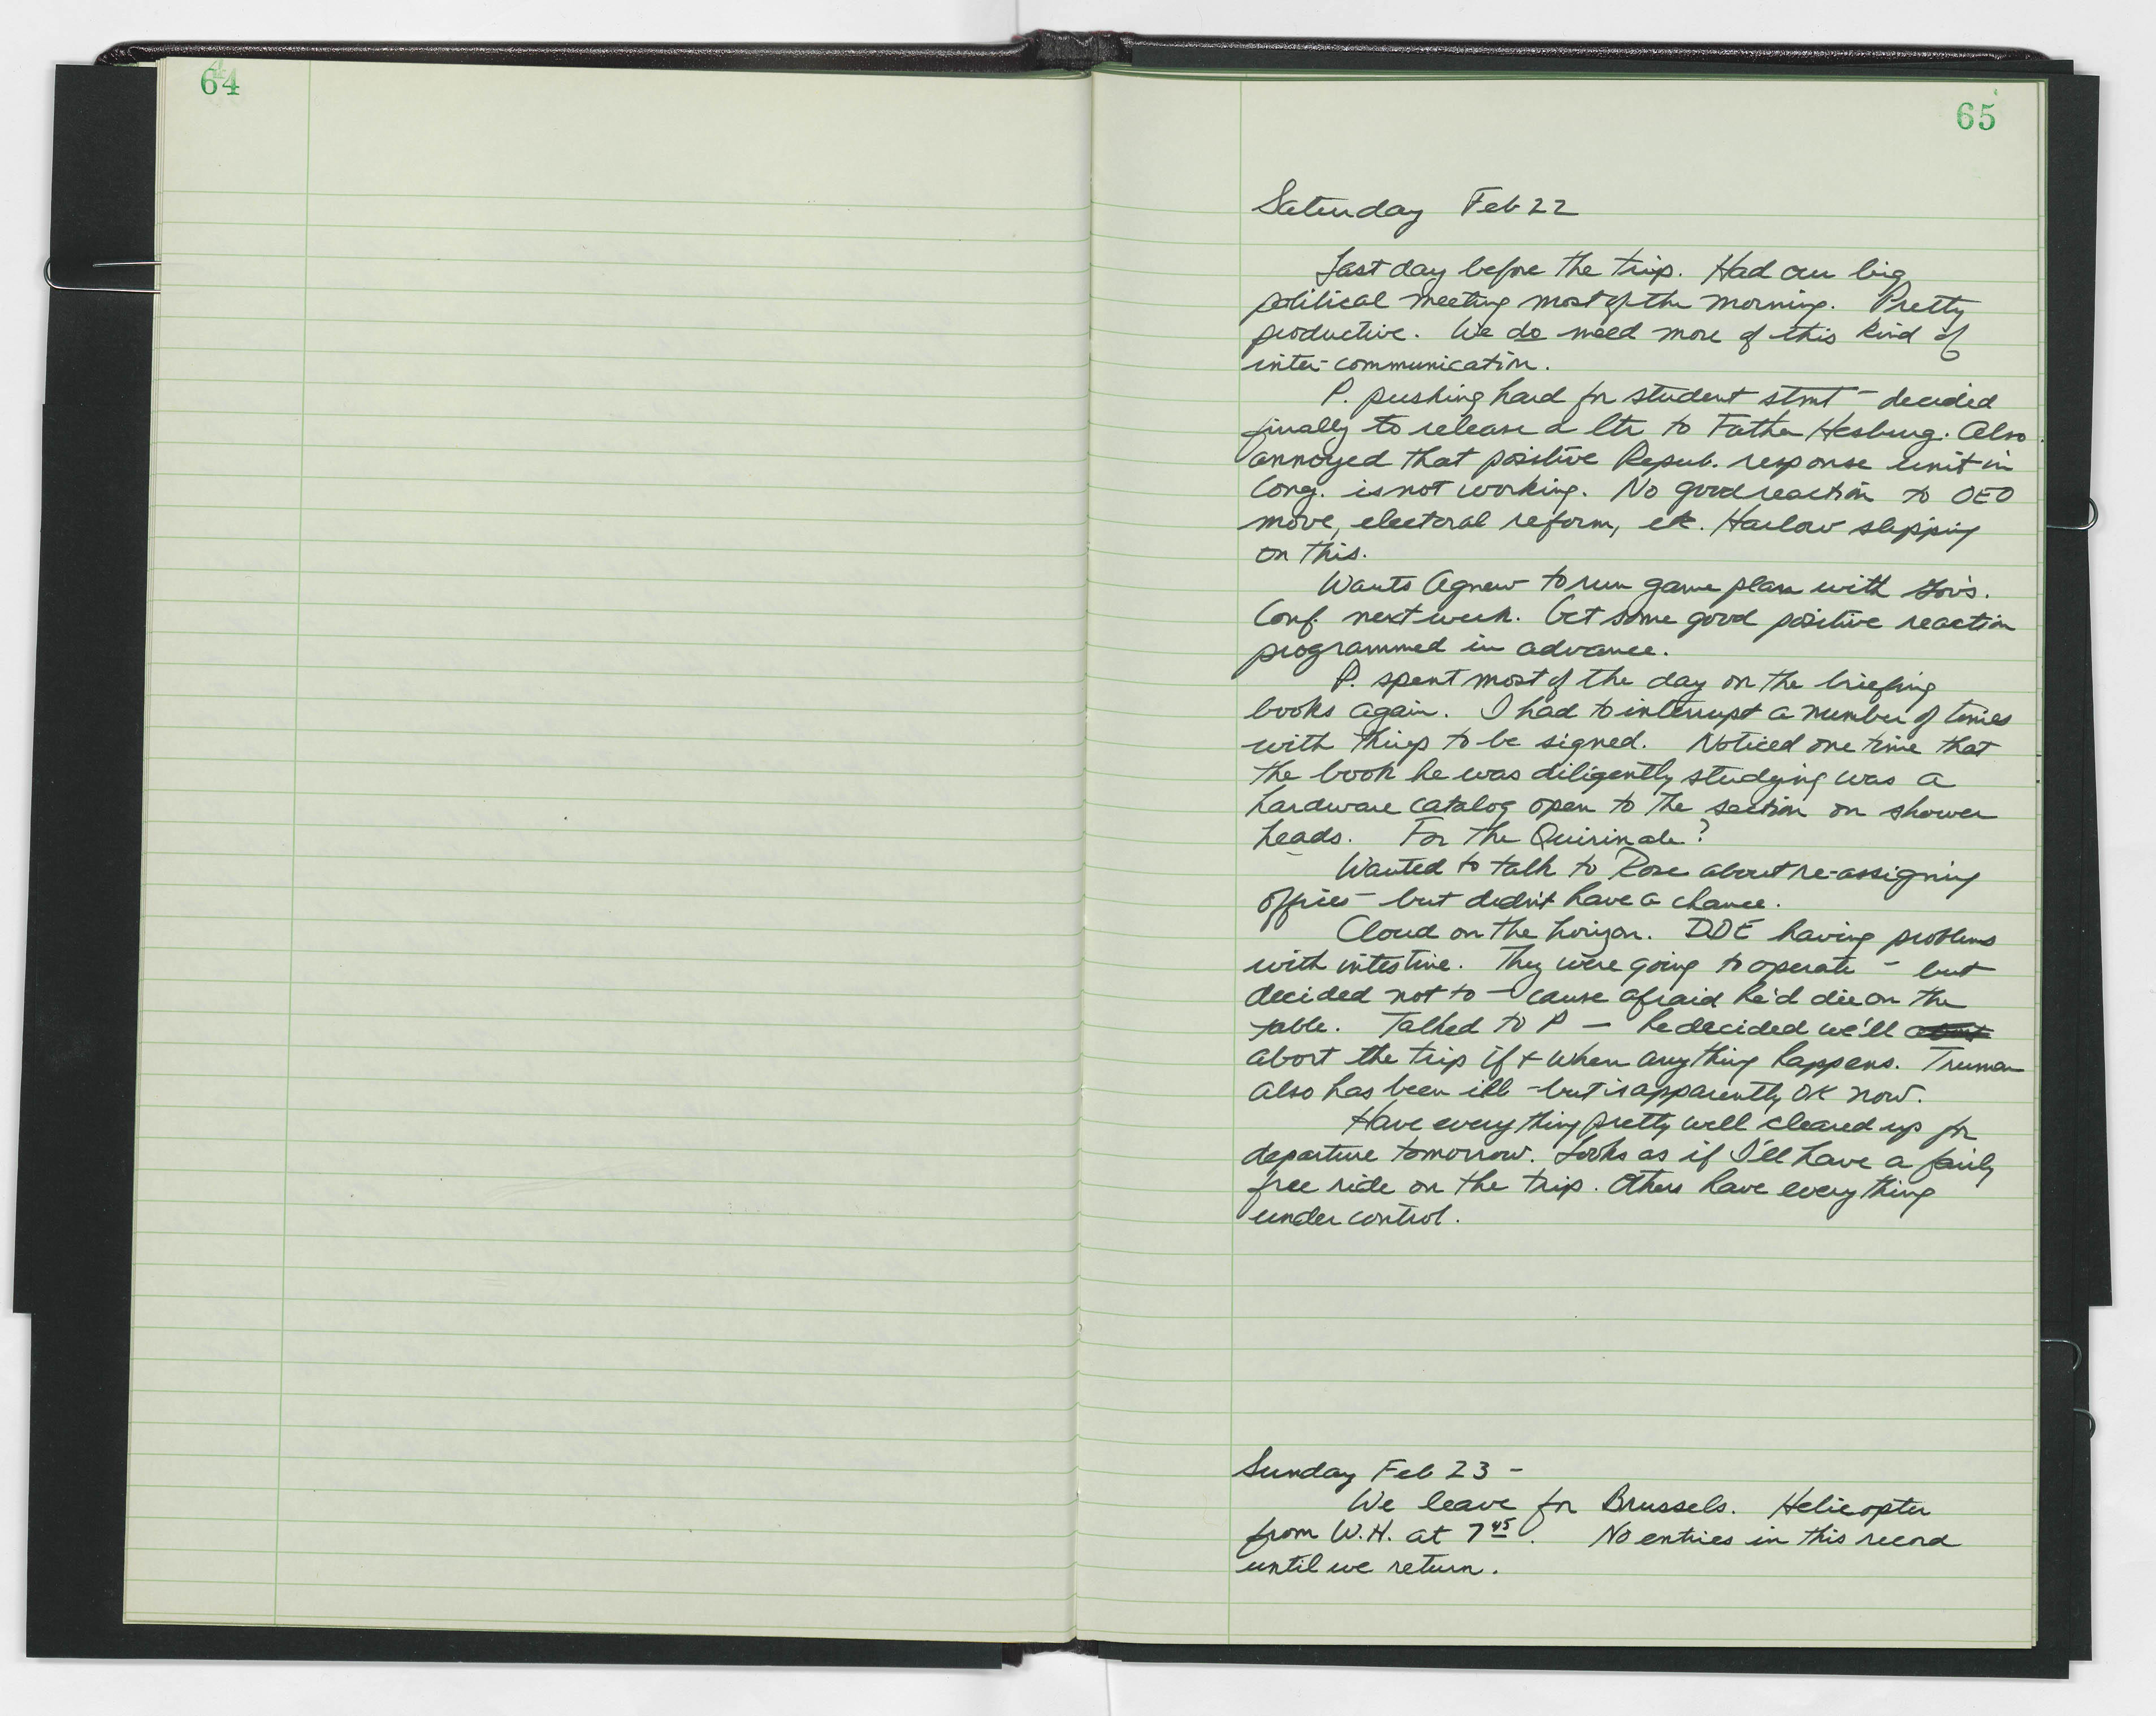 64
65
Saturday Feb 22
Last day before the trip. Had our big
political meeting most of the morning. Pretty
productive. We do need more of this kind of
inter-communication.
P. pushing hard for student stmt - decided
finally to release a ltr to Father Hesburg. Also
annoyed that positive Repub. response unit in
Cong. is not working. No good reaction to OEO
move, electoral reform, etc. Harlow slipping
on this.
Wants Agnew to run game plan with Gov's.
Conf. next week. Get some good positive reaction
programmed in advance.
P. spent most of the day on the briefing
books again. I had to interrupt a number of times
with things to be signed. Noticed one time that
the book he was diligently studying was a
hardware catalog open to the section on shower
heads. For the Quirinale?
Wanted to talk to Rose about re-assigning
offices - but didn't have a chance.
Cloud on the horizon. DDE having problems
with intestine. They were going to operate - but
decided not to - cause afraid he'd die on the
table. Talked to P - he decided we'll
abort the trip if + when anything happens. Truman
also has been ill - but is apparently OK now.
Have everything pretty well cleared up for
departure tomorrow. Looks as if I'll have a fairly
free ride on the trip. Others have everything
under control.
Sunday Feb 23 -
We leave for Brussels. Helicopter
from W.H. at 7 45. No entries in this record
until we return.